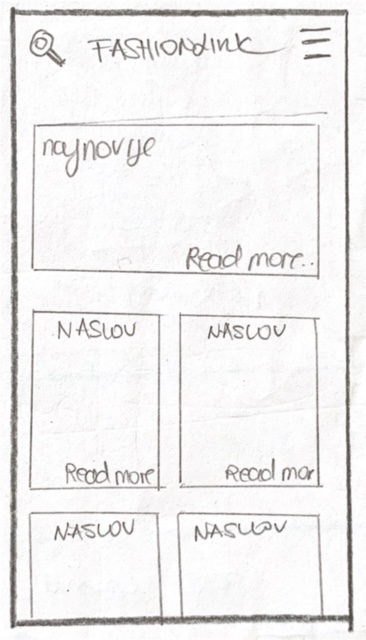 FASHIONdink
najnovije
Read more..
NASLOV NASLOV
Read more Read mor
NASLOV NASLOV